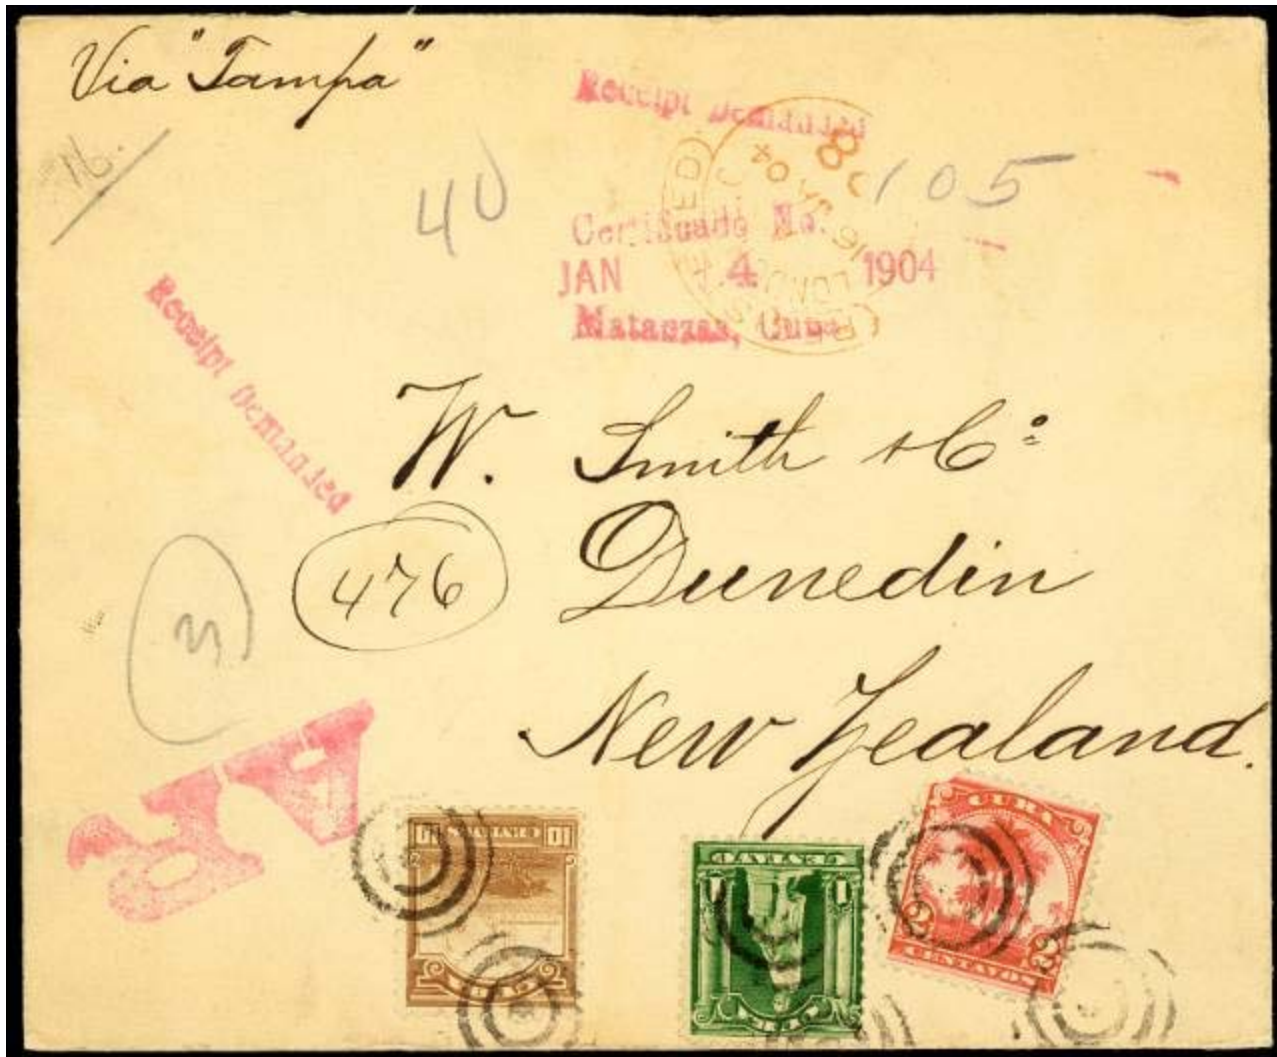 Via "Tampa"
16.
40
105
Receipt Demanded
Certificado No.
JAN 4 1904
Matanzas, Cuba
Receipt Demanded
W. Smith & Co
476
Dunedin
3
New Zealand.
AR
10 CENTAVOS 10
1 CENTAVO 1
CUBA
CUBA
2 CENTAVOS 2